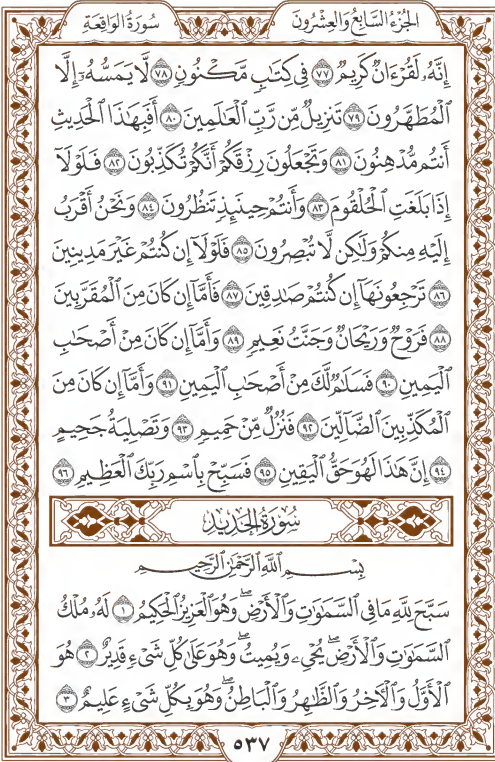 سُورَةُ الوَاقِعَةِ
الجُزْءُ السَّابِعُ وَالعِشْرُونَ
إِنَّهُۥ لَقُرْءَانٌ كَرِيمٌ ﴿٧٧﴾ فِى كِتَٰبٍ مَّكْنُونٍ ﴿٧٨﴾ لَّا يَمَسُّهُۥٓ إِلَّا
ٱلْمُطَهَّرُونَ ﴿٧٩﴾ تَنزِيلٌ مِّن رَّبِّ ٱلْعَٰلَمِينَ ﴿٨٠﴾ أَفَبِهَٰذَا ٱلْحَدِيثِ
أَنتُم مُّدْهِنُونَ ﴿٨١﴾ وَتَجْعَلُونَ رِزْقَكُمْ أَنَّكُمْ تُكَذِّبُونَ ﴿٨٢﴾ فَلَوْلَآ
إِذَا بَلَغَتِ ٱلْحُلْقُومَ ﴿٨٣﴾ وَأَنتُمْ حِينَئِذٍ تَنظُرُونَ ﴿٨٤﴾ وَنَحْنُ أَقْرَبُ
إِلَيْهِ مِنكُمْ وَلَٰكِن لَّا تُبْصِرُونَ ﴿٨٥﴾ فَلَوْلَآ إِن كُنتُمْ غَيْرَ مَدِينِينَ
﴿٨٦﴾ تَرْجِعُونَهَآ إِن كُنتُمْ صَٰدِقِينَ ﴿٨٧﴾ فَأَمَّآ إِن كَانَ مِنَ ٱلْمُقَرَّبِينَ
﴿٨٨﴾ فَرَوْحٌ وَرَيْحَانٌ وَجَنَّتُ نَعِيمٍ ﴿٨٩﴾ وَأَمَّآ إِن كَانَ مِنْ أَصْحَٰبِ
ٱلْيَمِينِ ﴿٩٠﴾ فَسَلَٰمٌ لَّكَ مِنْ أَصْحَٰبِ ٱلْيَمِينِ ﴿٩١﴾ وَأَمَّآ إِن كَانَ مِنَ
ٱلْمُكَذِّبِينَ ٱلضَّآلِّينَ ﴿٩٢﴾ فَنُزُلٌ مِّنْ حَمِيمٍ ﴿٩٣﴾ وَتَصْلِيَةُ جَحِيمٍ
﴿٩٤﴾ إِنَّ هَٰذَا لَهُوَ حَقُّ ٱلْيَقِينِ ﴿٩٥﴾ فَسَبِّحْ بِٱسْمِ رَبِّكَ ٱلْعَظِيمِ ﴿٩٦﴾
سُورَةُ الحَدِيدِ
بِسْمِ ٱللَّهِ ٱلرَّحْمَٰنِ ٱلرَّحِيمِ
سَبَّحَ لِلَّهِ مَا فِى ٱلسَّمَٰوَٰتِ وَٱلْأَرْضِۖ وَهُوَ ٱلْعَزِيزُ ٱلْحَكِيمُ ﴿١﴾ لَهُۥ مُلْكُ
ٱلسَّمَٰوَٰتِ وَٱلْأَرْضِۖ يُحْىِۦ وَيُمِيتُۖ وَهُوَ عَلَىٰ كُلِّ شَىْءٍ قَدِيرٌ ﴿٢﴾ هُوَ
ٱلْأَوَّلُ وَٱلْءَاخِرُ وَٱلظَّٰهِرُ وَٱلْبَاطِنُۖ وَهُوَ بِكُلِّ شَىْءٍ عَلِيمٌ ﴿٣﴾
٥٣٧